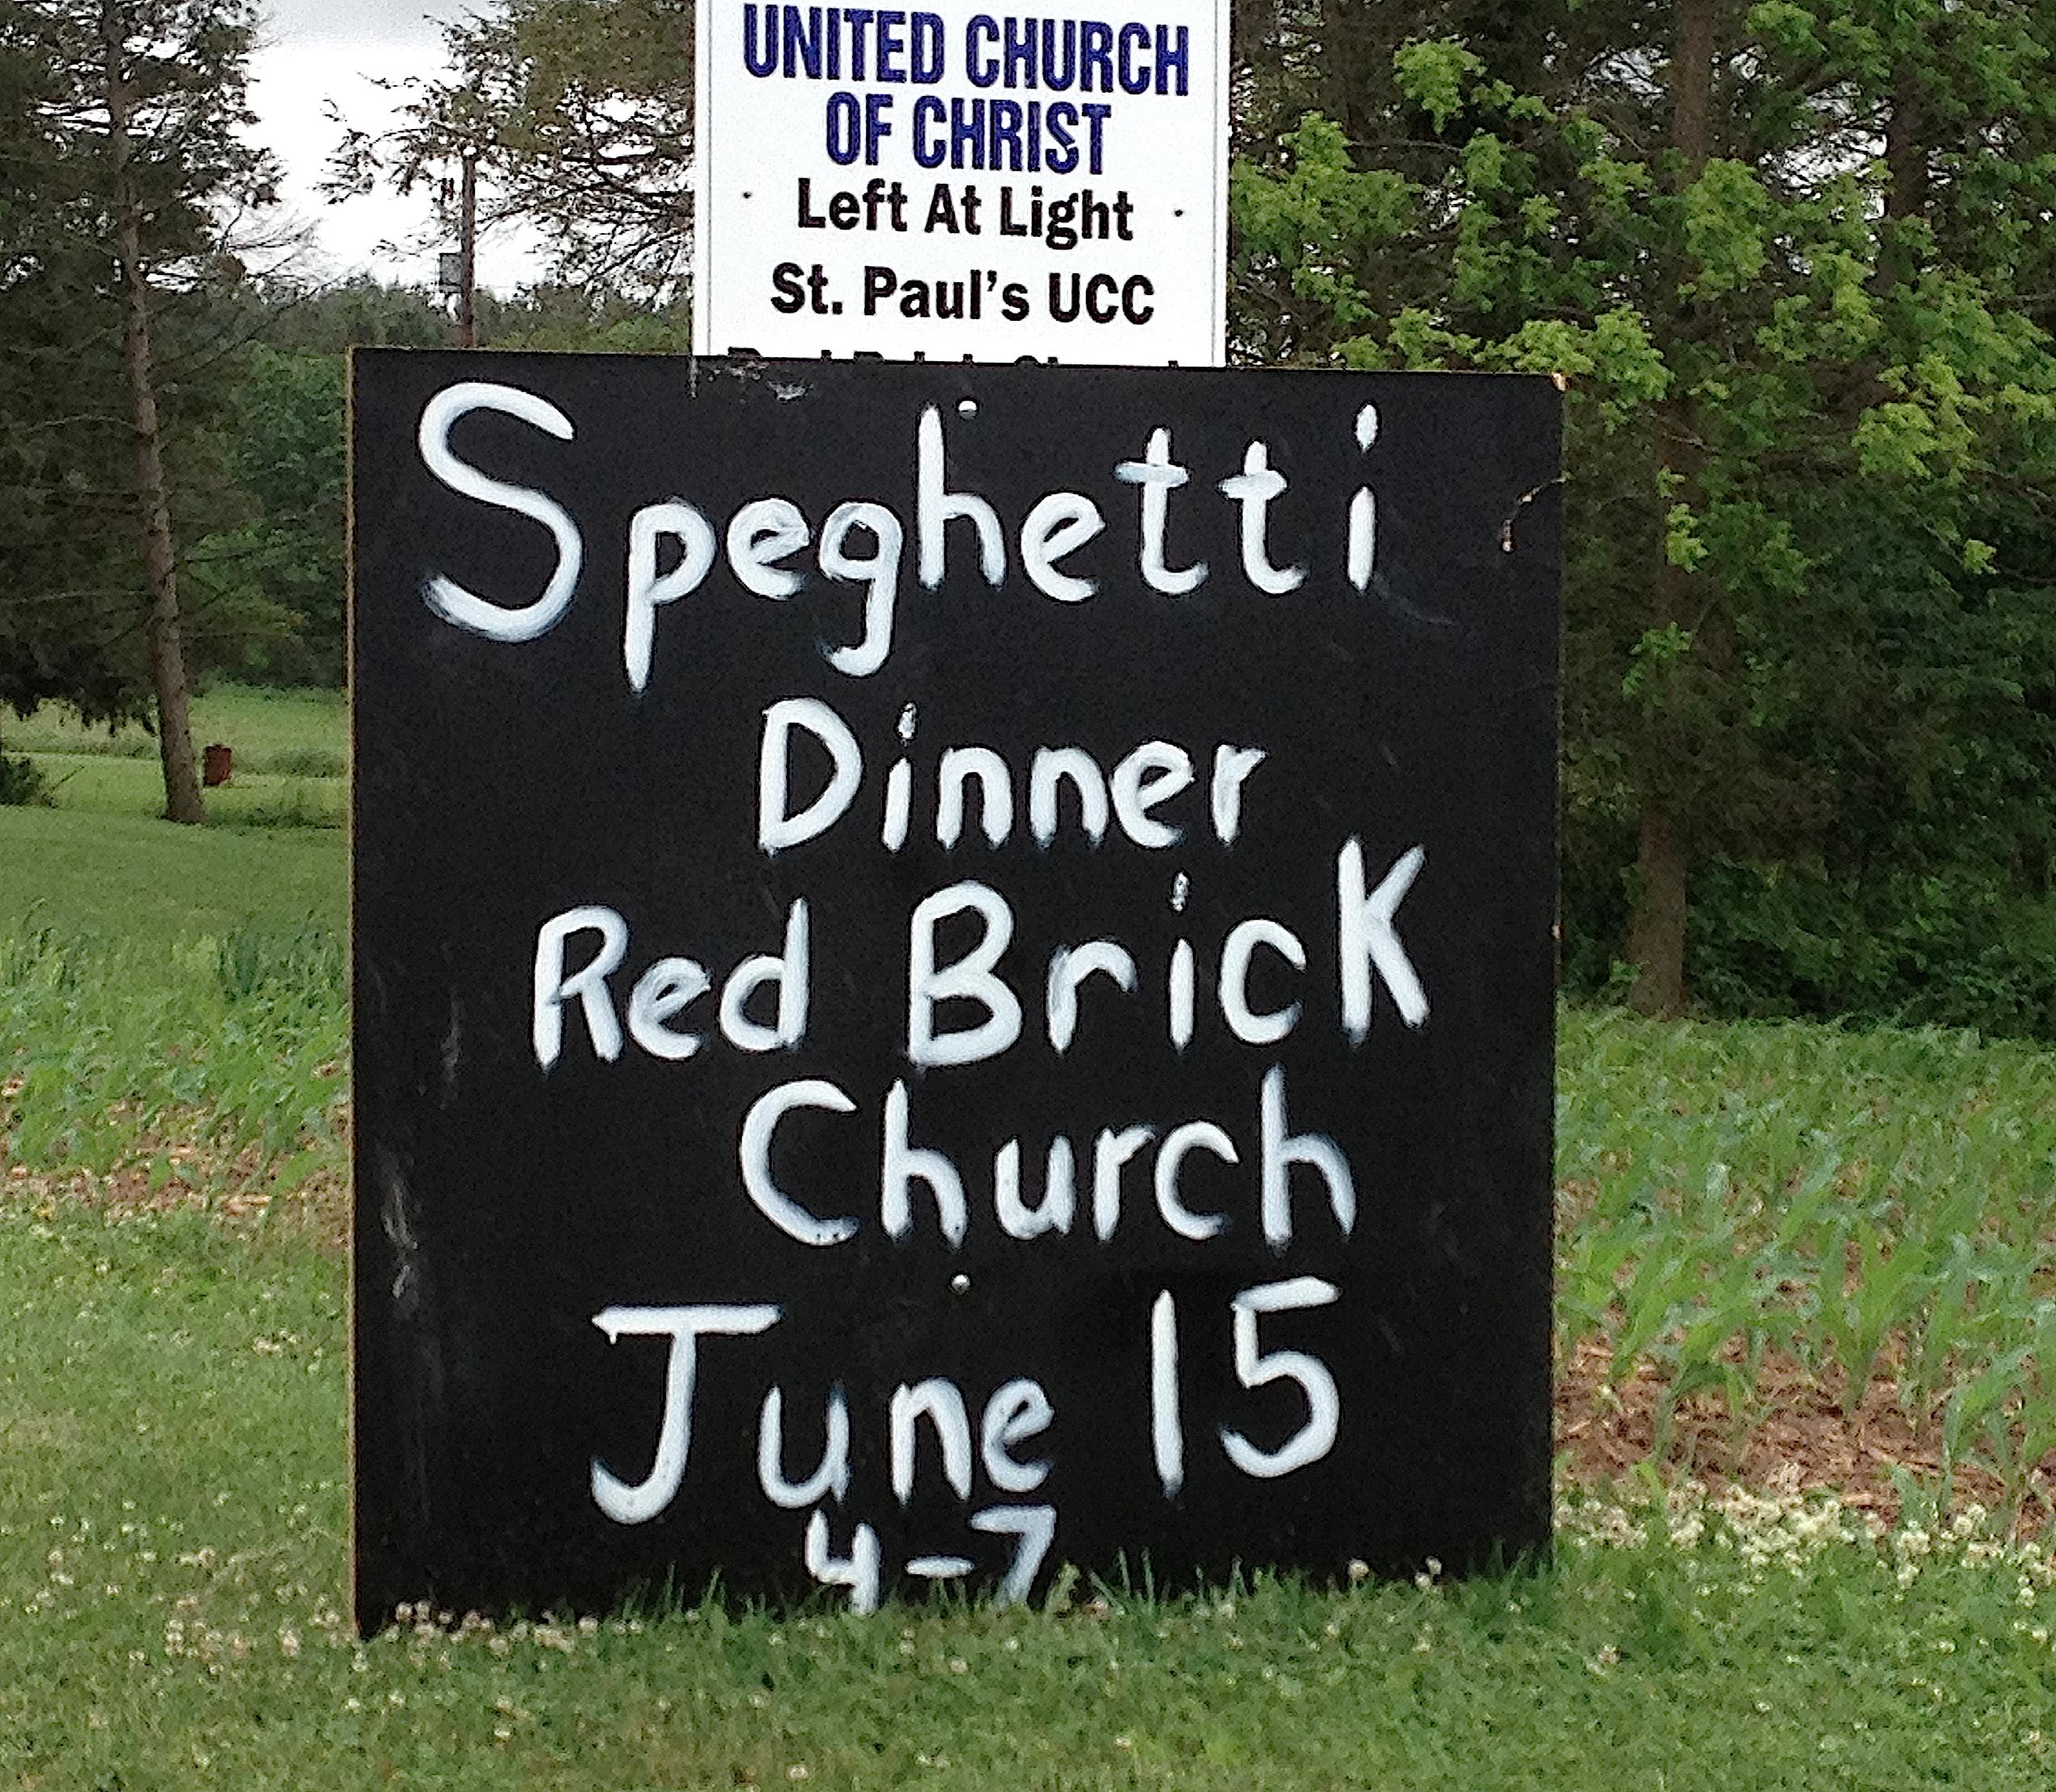 UNITED CHURCH
OF CHRIST
Left At Light
St. Paul's UCC
Speghetti
Dinner
Red Brick
Church
June 15
4-7